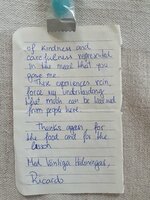 of kindness and
carefulness represented
in the meal that you
gave me.
This experiences rein
force my understanding
that much can be learned
from people here.
Thanks again, for
the food and for the
lesson
Med Vänliga Hälsningar,
Ricardo